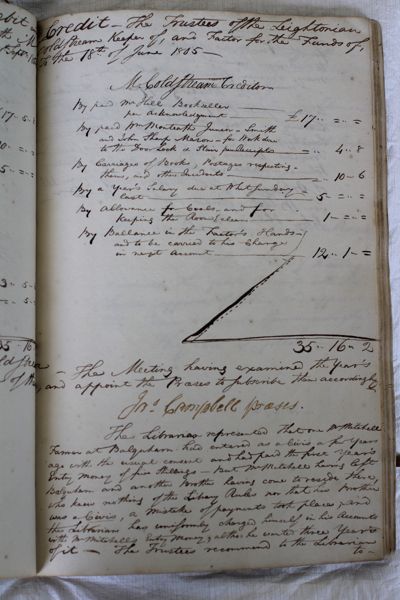 Credit — The Trustees of the Leightonian
Coldstream Keeper of, and Factor for the Funds of,
to the 18th of June 1815 —
Mr. Coldstream Creditor
By paid Mr Hill Bookseller
per acknowledgment — £17 .. = .. =
By paid Wm Monteath Junior — Smith
and John Sharp Mason — for Work done
to the Door Lock & Stair per Receipts — = .. 4 .. 8
By Carriages of Books, Postages respecting
them, and other Incidents — 10 .. 6
By a Year's Salary due at Whitsunday
last — 5 .. = .. =
By allowance for Coals, and for
keeping the Room clean — 1 .. = .. =
By Ballance in the Factor's Hands
and to be carried to his Charge
in next Account — 12 .. 1 .. =
35 .. 16 .. 2
— The Meeting having examined the Year's
and appoint the Preses to subscribe them accordingly
Jno. Campbell Preses.
The Librarian represented that one Mr Mitchell
Farmer at Balgubarn had entered as a Civis a few Years
ago with the usual consent and had paid the first Year's
Entry Money of five shillings — But Mr Mitchell having left
and another Brother having come to reside there,
who knew nothing of the Library Rules nor that his Brother
was a Civis, a mistake of payments took place, and
the Librarian has uniformly charged himself in his Accounts
with Mr Mitchell's Entry Money, altho he wants three Years
of it — The Trustees recommend to the Librarian
to —